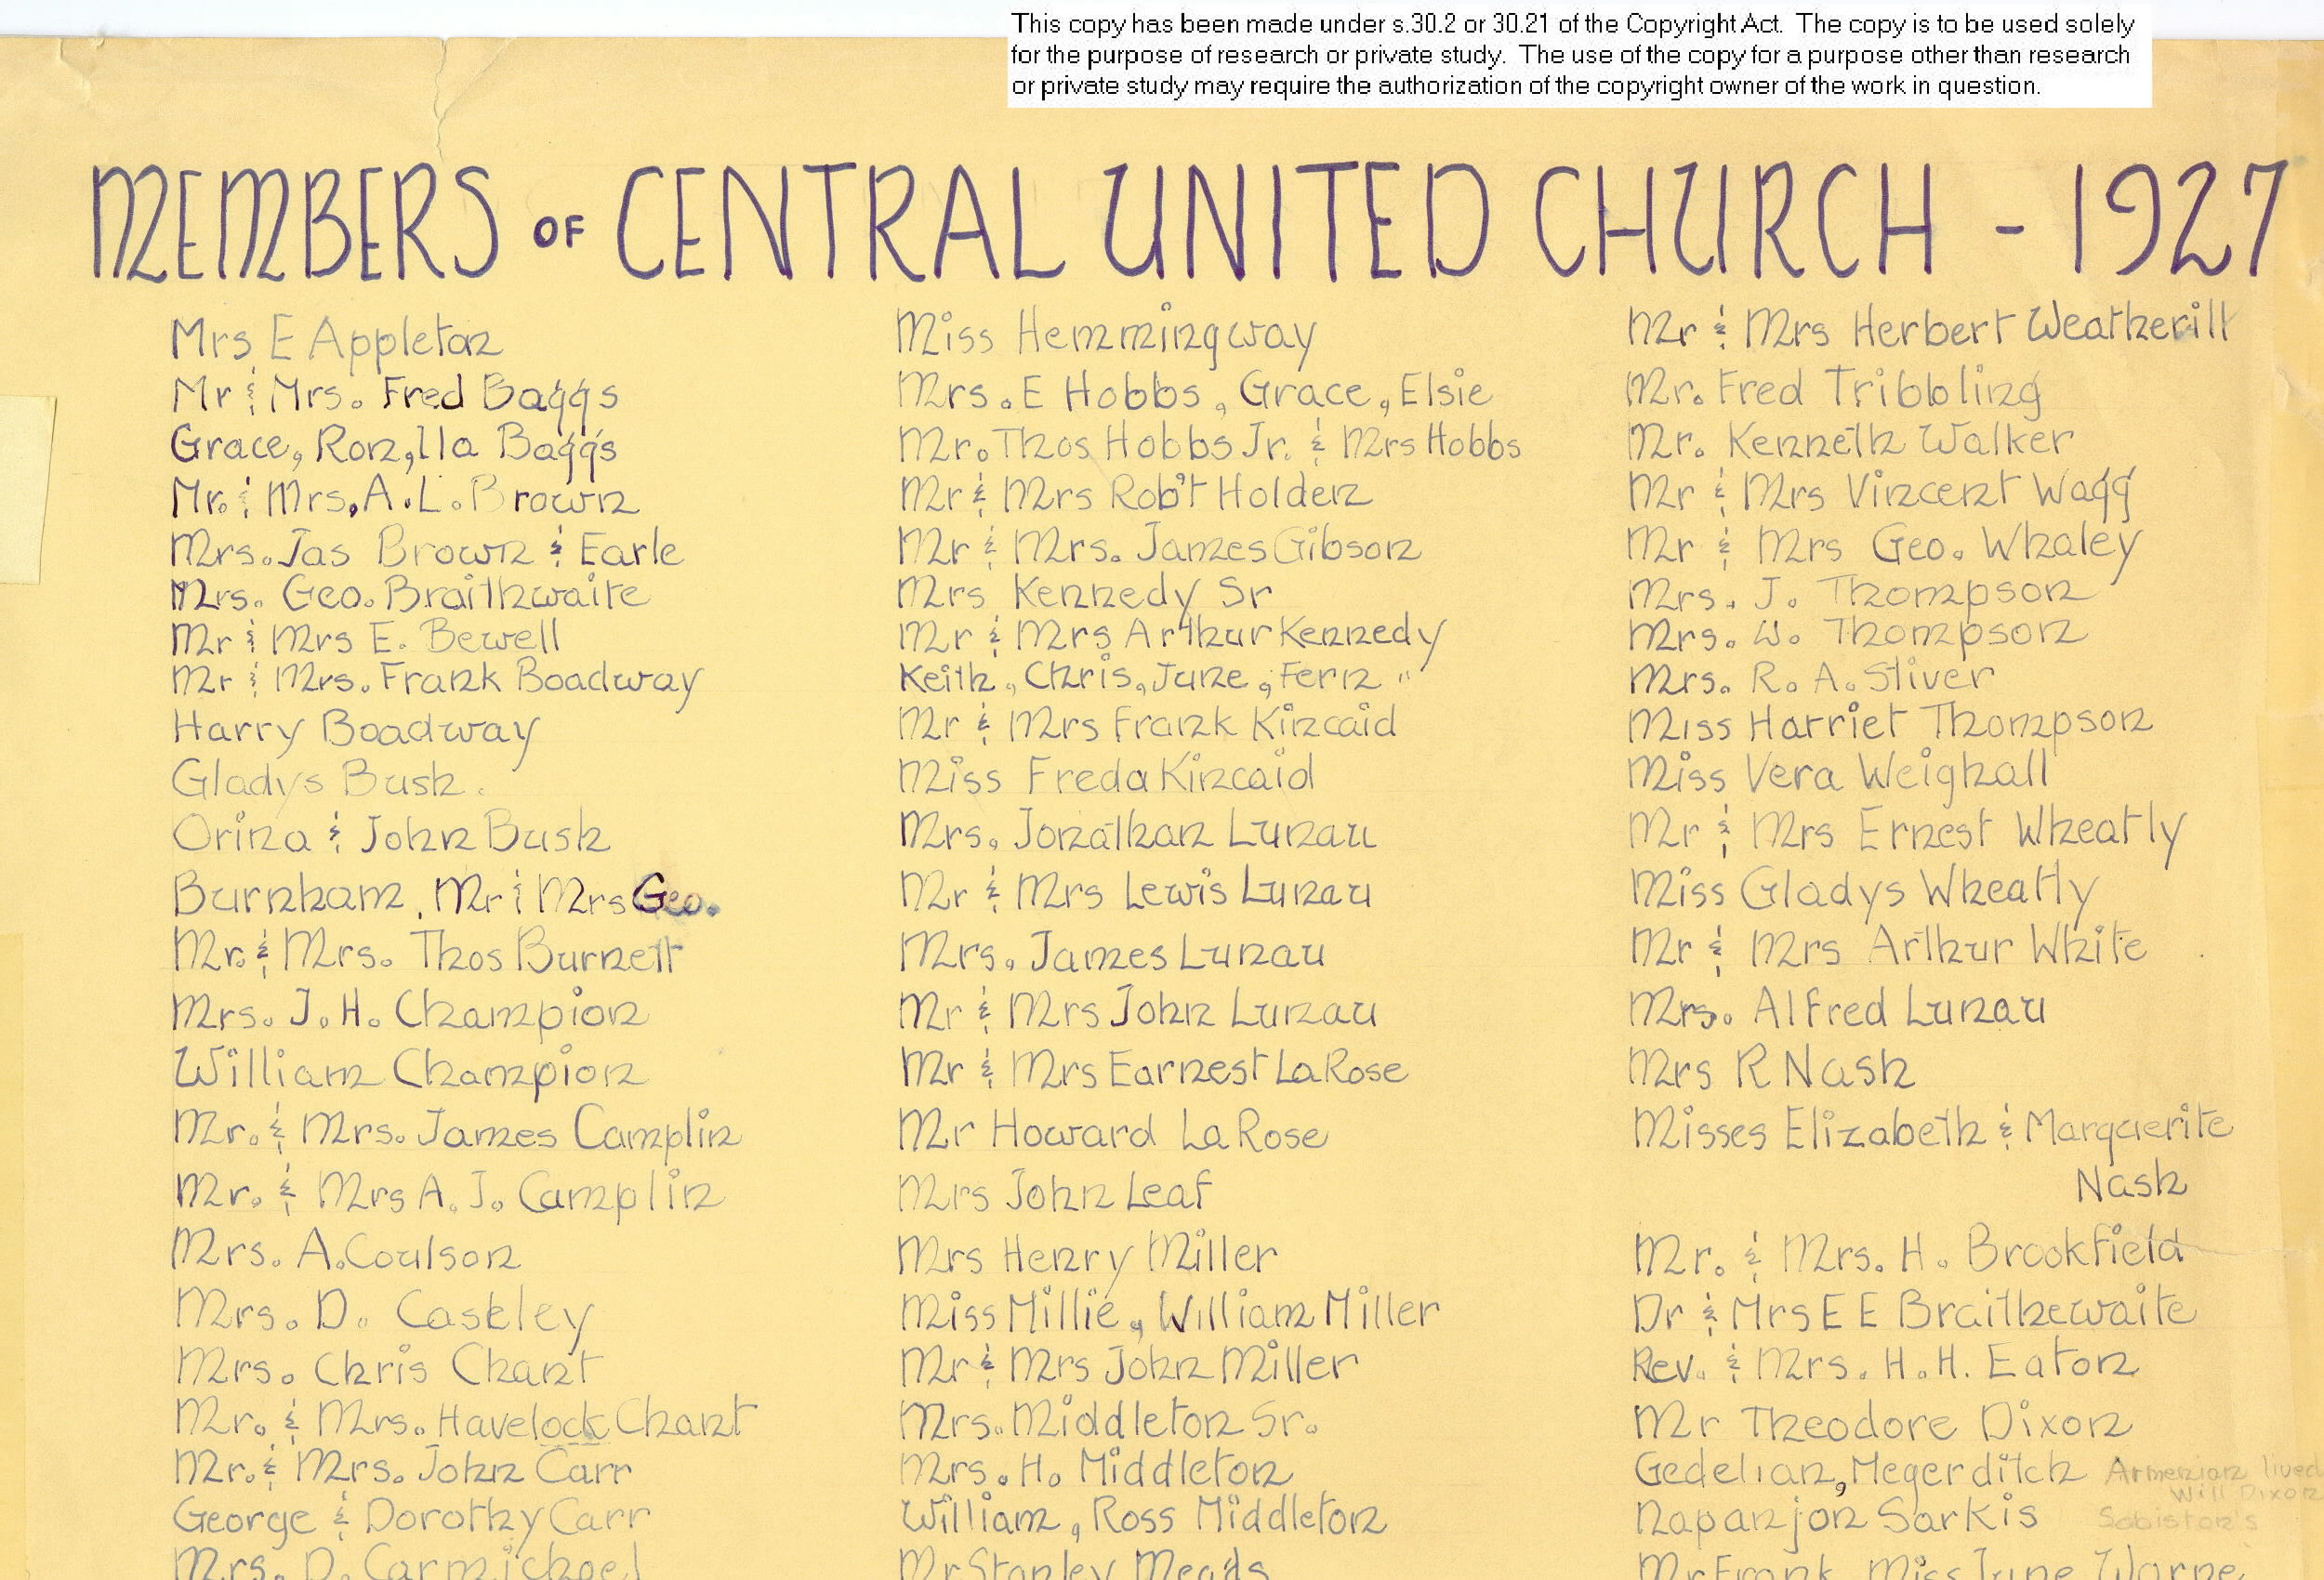 This copy has been made under s.30.2 or 30.21 of the Copyright Act. The copy is to be used solely
for the purpose of research or private study. The use of the copy for a purpose other than research
or private study may require the authorization of the copyright owner of the work in question.
MEMBERS OF CENTRAL UNITED CHURCH - 1927
Mrs E Appleton
Mr & Mrs. Fred Baggs
Grace, Ron, Ila Baggs
Mr. & Mrs. A. L. Brown
Mrs. Jas Brown & Earle
Mrs. Geo. Braithwaite
Mr & Mrs E. Bewell
Mr & Mrs. Frank Boadway
Harry Boadway
Gladys Bush.
Orina & John Bush
Burnham, Mr & Mrs Geo.
Mr. & Mrs. Thos Burnett
Mrs. J. H. Champion
William Champion
Mr. & Mrs. James Camplin
Mr. & Mrs A. J. Camplin
Mrs. A. Coulson
Mrs. D. Caskley
Mrs. Chris Chant
Mr. & Mrs. Havelock Chant
Mr. & Mrs. John Carr
George & Dorothy Carr
Mrs. D. Carmichael
Miss Hemmingway
Mrs. E Hobbs, Grace, Elsie
Mr. Thos Hobbs Jr. & Mrs Hobbs
Mr & Mrs Rob't Holden
Mr & Mrs. James Gibson
Mrs Kennedy Sr
Mr & Mrs Arthur Kennedy
Keith, Chris, June, Fern "
Mr & Mrs Frank Kincaid
Miss Freda Kincaid
Mrs. Jonathan Lunau
Mr & Mrs Lewis Lunau
Mrs. James Lunau
Mr & Mrs John Lunau
Mr & Mrs Earnest LaRose
Mr Howard LaRose
Mrs John Leaf
Mrs Henry Miller
Miss Millie, William Miller
Mr & Mrs John Miller
Mrs. Middleton Sr.
Mrs. H. Middleton
William, Ross Middleton
Mr Stanley Meads
Mr & Mrs Herbert Weatherill
Mr. Fred Tribbling
Mr. Kenneth Walker
Mr & Mrs Vincent Wagg
Mr & Mrs Geo. Whaley
Mrs. J. Thompson
Mrs. W. Thompson
Mrs. R. A. Stiver
Miss Harriet Thompson
Miss Vera Weighall
Mr & Mrs Ernest Wheatly
Miss Gladys Wheatly
Mr & Mrs Arthur White
Mrs. Alfred Lunau
Mrs R Nash
Misses Elizabeth & Marguerite
Nash
Mr. & Mrs. H. Brookfield
Dr & Mrs E E Braithewaite
Rev. & Mrs. H. H. Eaton
Mr Theodore Dixon
Gedelian, Megerditch Armenian lived
Will Dixon
Napanjon Sarkis Sabiston's
Mr Frank, Miss June Warne